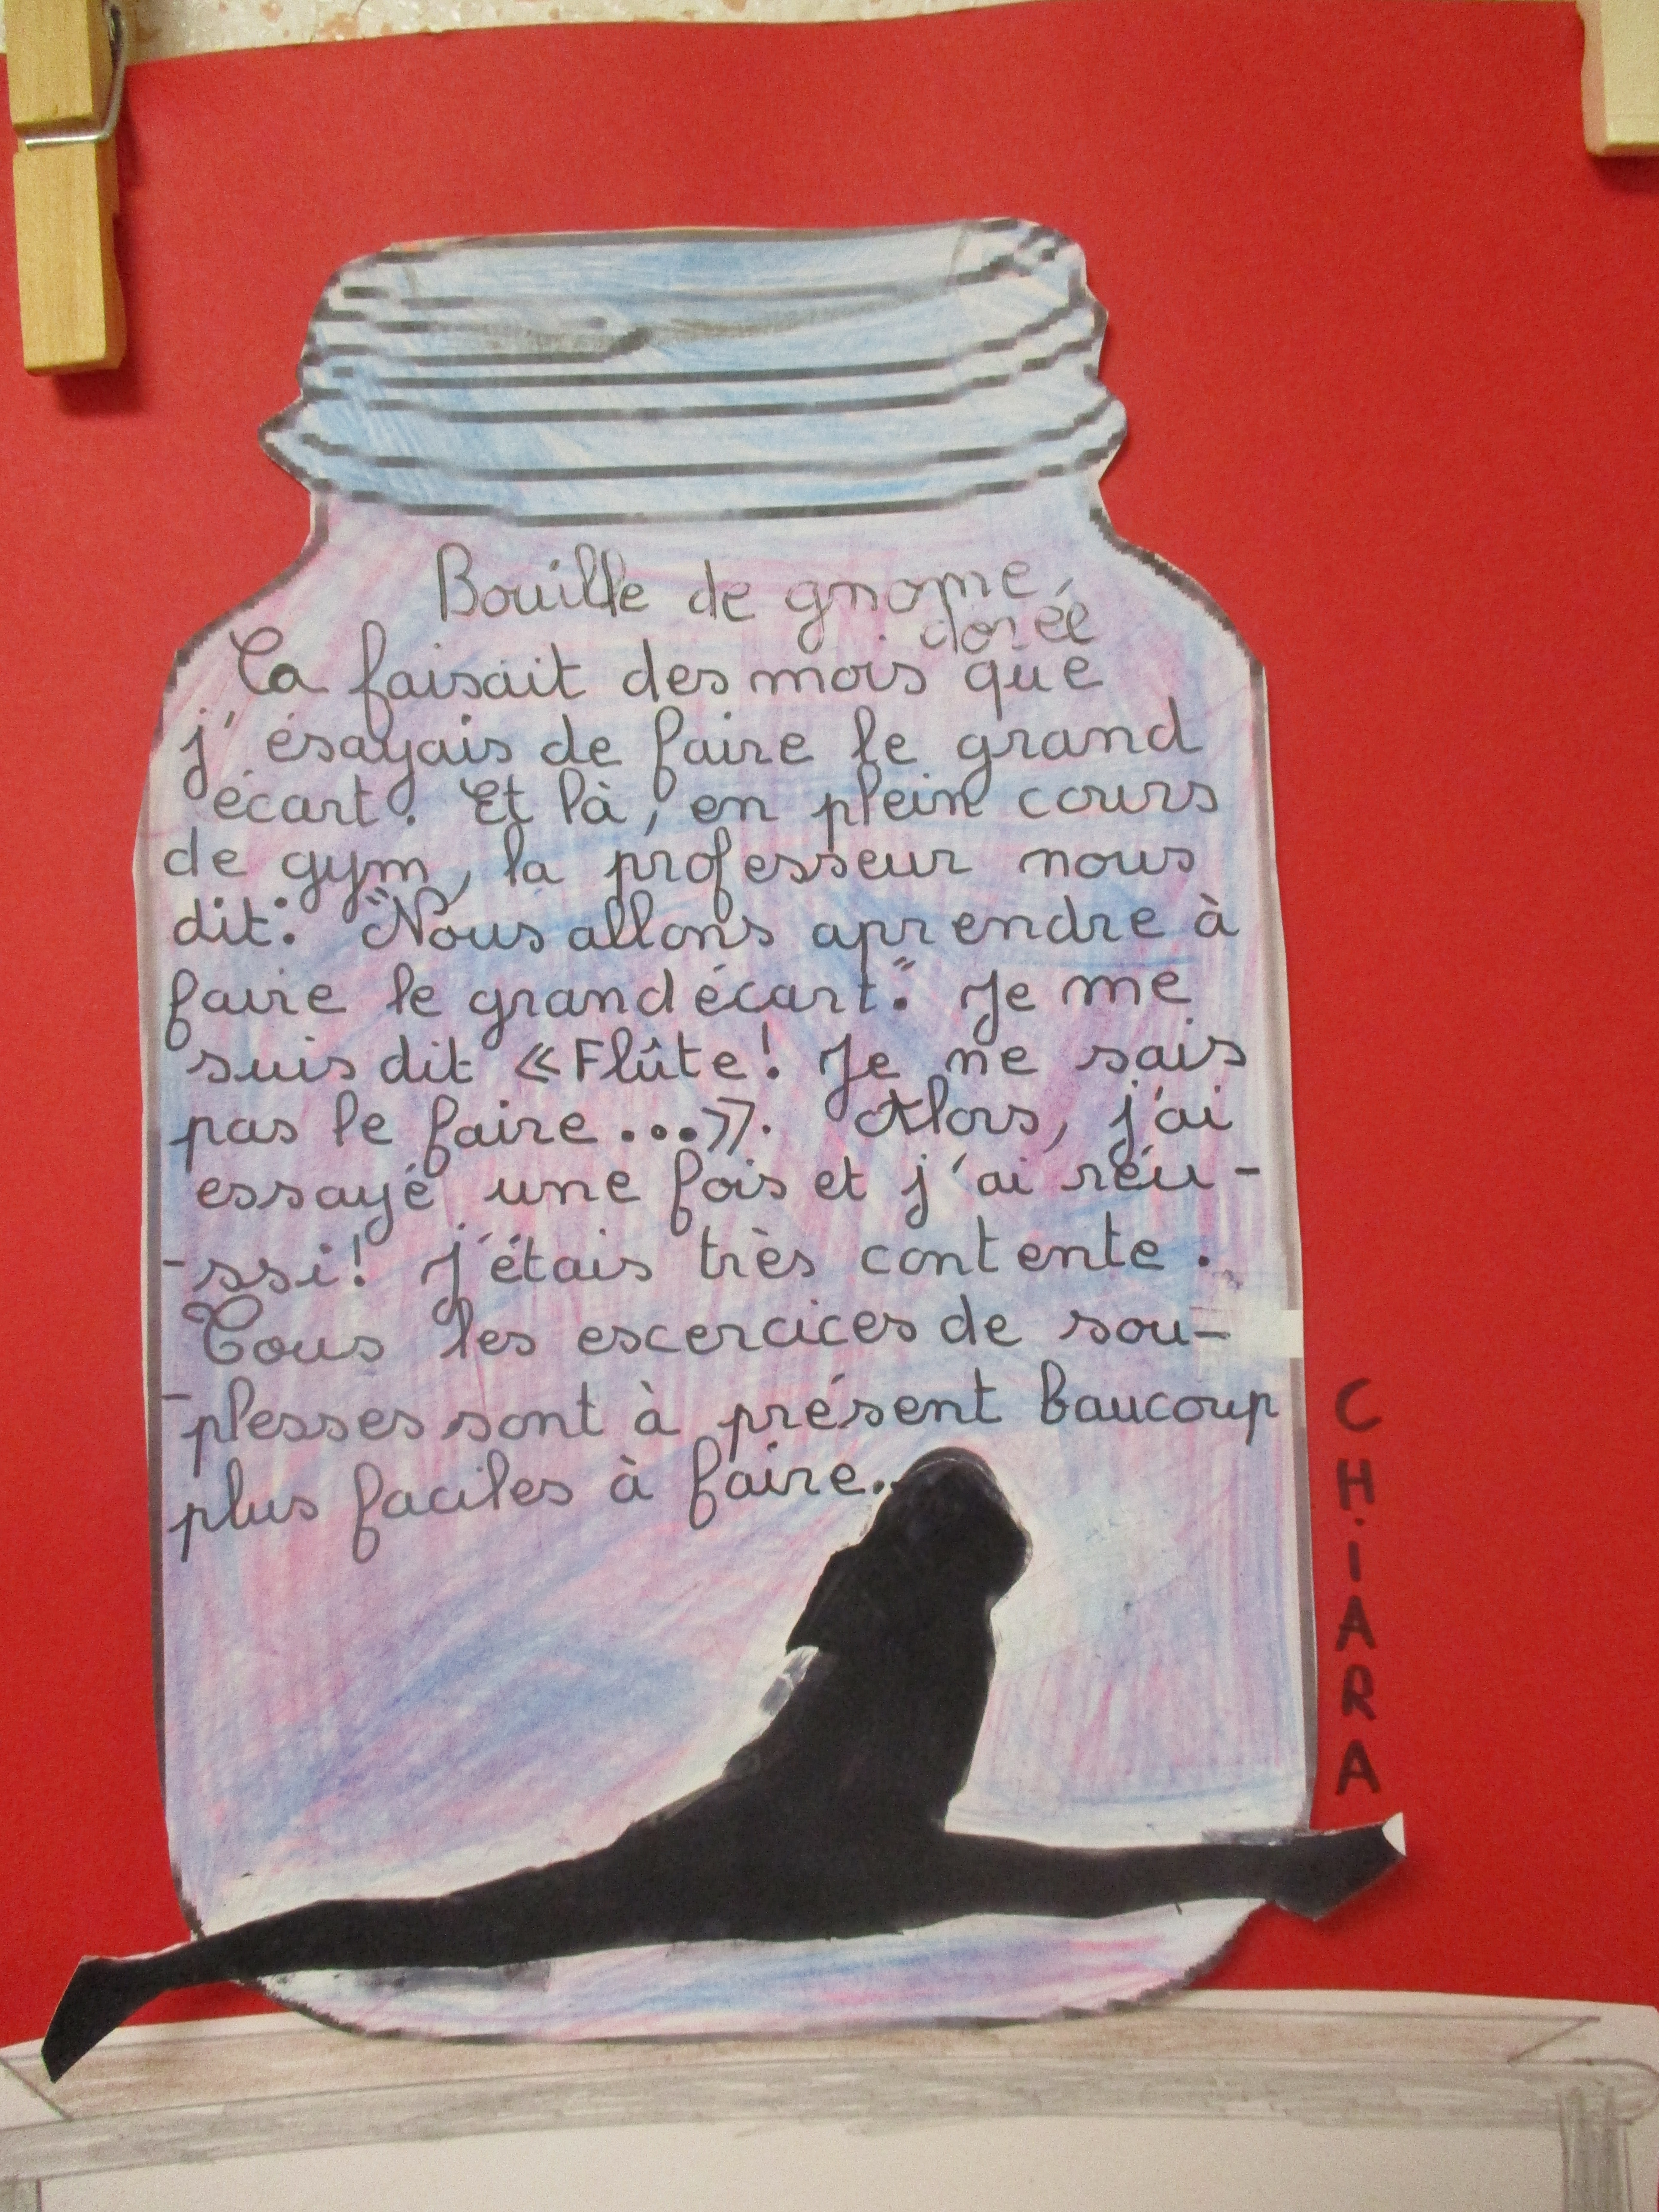 Bouille de gnome,
dorée
Ca faisait des mois que
j'ésayais de faire le grand
écart. Et là, en plein cours
de gym, la professeur nous
dit: "Nous allons aprendre à
faire le grand écart." Je me
suis dit «Flûte! Je ne sais
pas le faire...». Alors, j'ai
essayé une fois et j'ai réu-
-ssi! J'étais très contente.
Tous les escercices de sou-
-plesses sont à présent baucoup
plus faciles à faire..
CHIARA